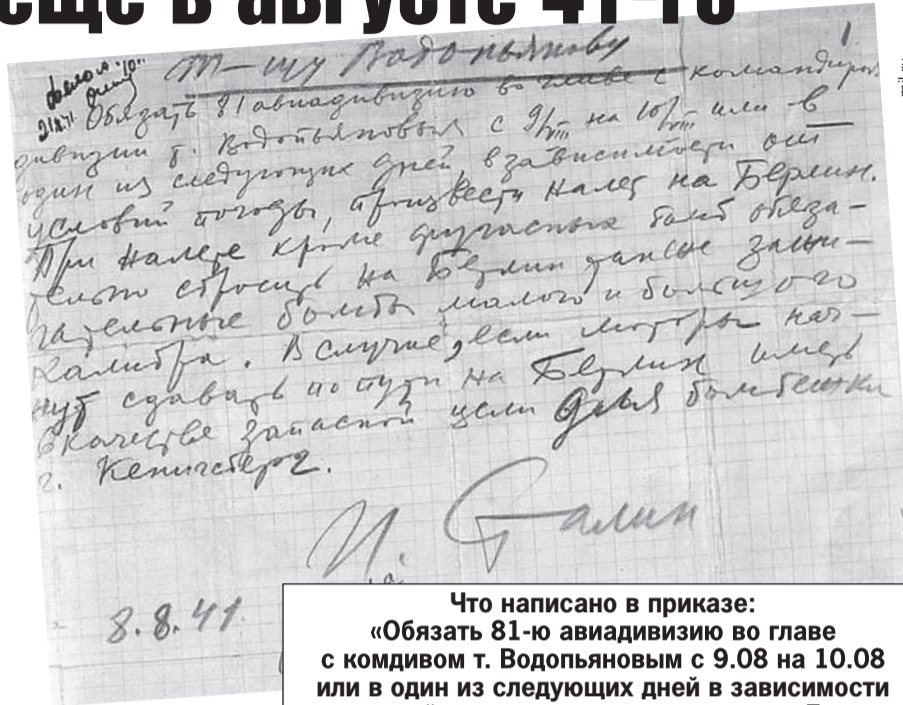 еще в августе 41-го
Т-щу Водопьянову
1
Обязать 81 авиадивизию во главе с командиром
дивизии т. Водопьяновым с 9/VIII на 10/VIII или в
один из следующих дней в зависимости от
условий погоды, произвести налет на Берлин.
При налете кроме фугасных бомб обяза-
тельно сбросить на Берлин также зажи-
гательные бомбы малого и большого
калибра. В случае, если моторы нач-
нут сдавать по пути на Берлин иметь
в качестве запасной цели для бомбежки
г. Кенигсберг.
И. Сталин
8.8.41
Что написано в приказе:
«Обязать 81-ю авиадивизию во главе
с комдивом т. Водопьяновым с 9.08 на 10.08
или в один из следующих дней в зависимости